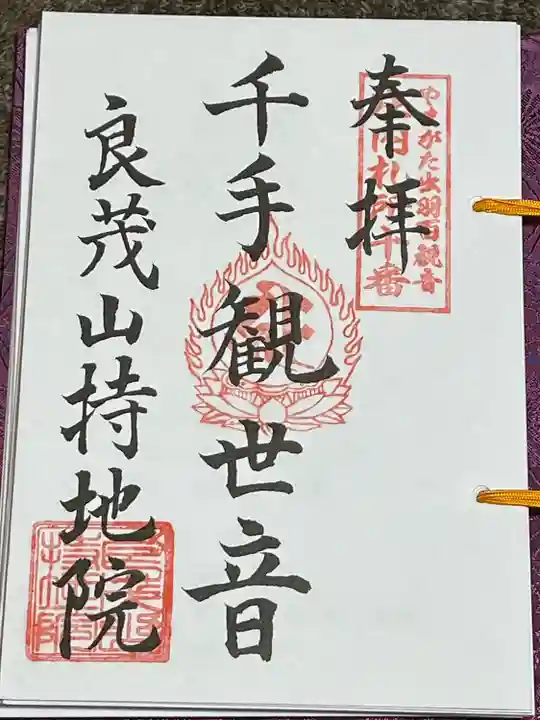 奉拝
やまがた出羽百観音
庄内札所十番
千手観世音
良茂山持地院